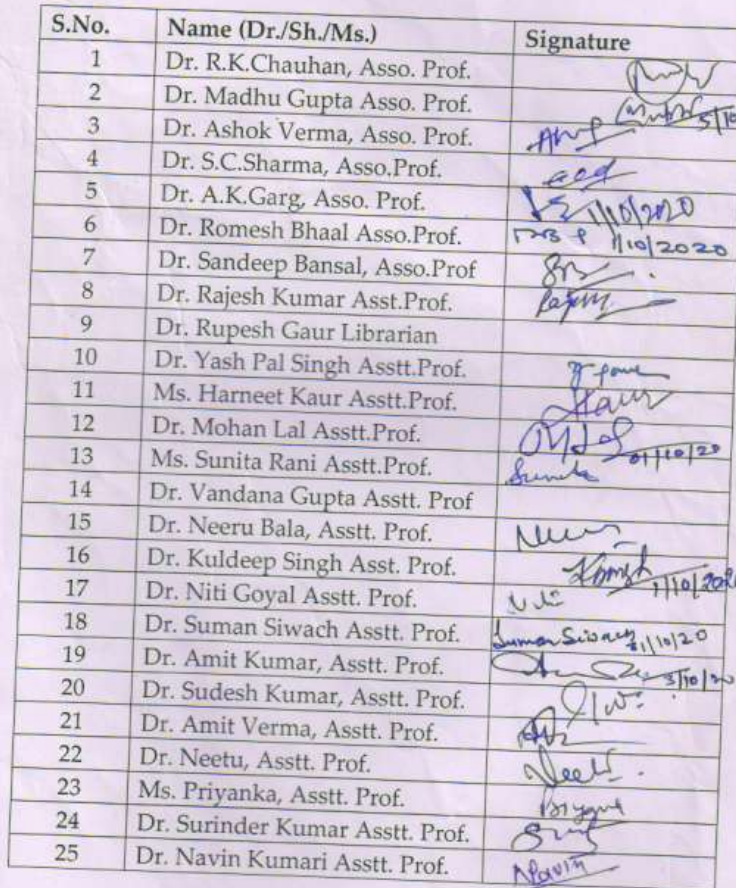 S.No. Name (Dr./Sh./Ms.) Signature
1 Dr. R.K.Chauhan, Asso. Prof.
2 Dr. Madhu Gupta Asso. Prof.
3 Dr. Ashok Verma, Asso. Prof.
4 Dr. S.C.Sharma, Asso.Prof.
5 Dr. A.K.Garg, Asso. Prof. 1/10/2020
6 Dr. Romesh Bhaal Asso.Prof. 1/10/2020
7 Dr. Sandeep Bansal, Asso.Prof
8 Dr. Rajesh Kumar Asst.Prof.
9 Dr. Rupesh Gaur Librarian
10 Dr. Yash Pal Singh Asstt.Prof.
11 Ms. Harneet Kaur Asstt.Prof. Kaur
12 Dr. Mohan Lal Asstt.Prof. 01/10/20
13 Ms. Sunita Rani Asstt.Prof. Sunita
14 Dr. Vandana Gupta Asstt. Prof
15 Dr. Neeru Bala, Asstt. Prof.
16 Dr. Kuldeep Singh Asst. Prof.
17 Dr. Niti Goyal Asstt. Prof.
18 Dr. Suman Siwach Asstt. Prof. Suman Siwach
19 Dr. Amit Kumar, Asstt. Prof.
20 Dr. Sudesh Kumar, Asstt. Prof.
21 Dr. Amit Verma, Asstt. Prof.
22 Dr. Neetu, Asstt. Prof.
23 Ms. Priyanka, Asstt. Prof.
24 Dr. Surinder Kumar Asstt. Prof.
25 Dr. Navin Kumari Asstt. Prof. Navin